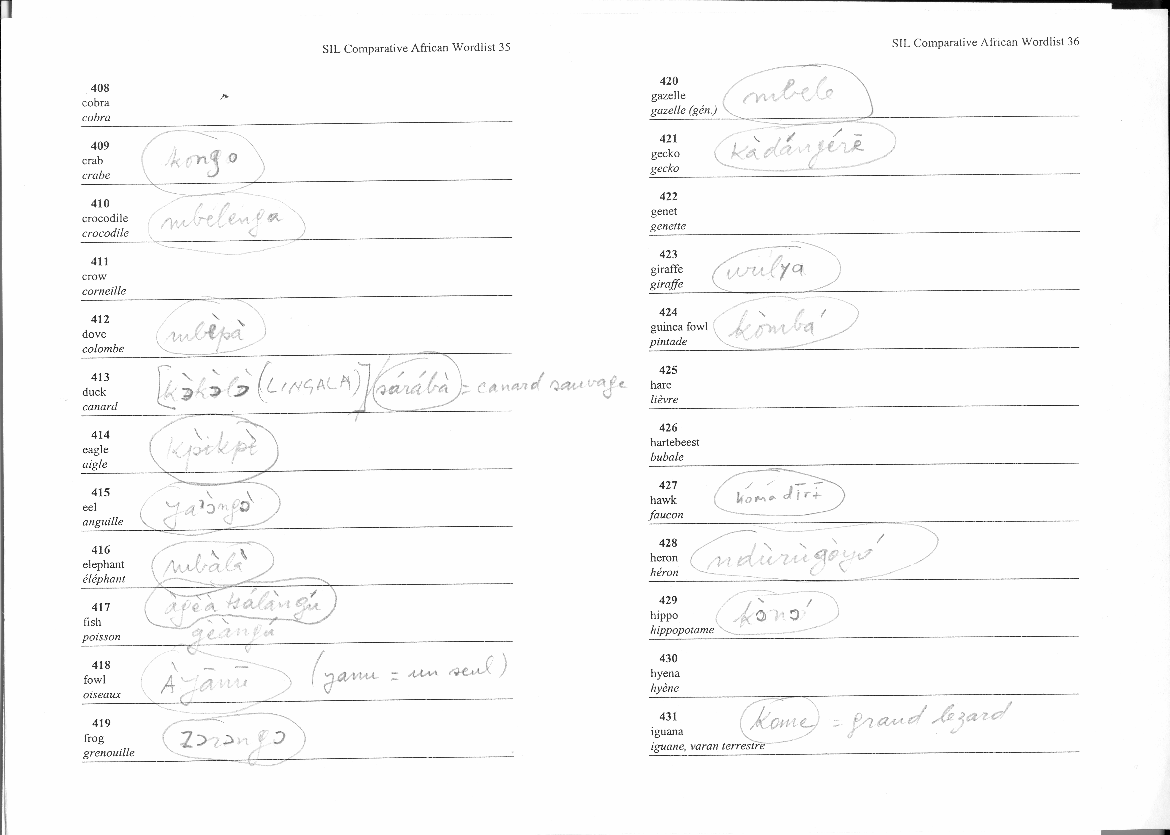 SIL Comparative African Wordlist 35
408
cobra
cobra
409
crab kongo
crabe
410
crocodile mbélenga
crocodile
411
crow
corneille
412
dove mbèpà
colombe
413
duck [kɔ̀kɔ̀lɔ̀ (LINGALA)] sárábà = canard sauvage
canard
414
eagle
aigle
415
eel
anguille
416
elephant mbàlà
éléphant
417
fish
poisson gèàngú
418
fowl Àyāmū (yamu = un seul)
oiseaux
419
frog zɔrɔngɔ
grenouille
SIL Comparative African Wordlist 36
420
gazelle mbelo
gazelle (gén.)
421
gecko kàdángérē
gecko
422
genet
genette
423
giraffe wulya
giraffe
424
guinea fowl kòmbá
pintade
425
hare
lièvre
426
hartebeest
bubale
427
hawk
faucon
428
heron ndùrùgòyó
héron
429
hippo kɔ̀nɔ́
hippopotame
430
hyena
hyène
431
iguana kome = grand lezard
iguane, varan terrestre